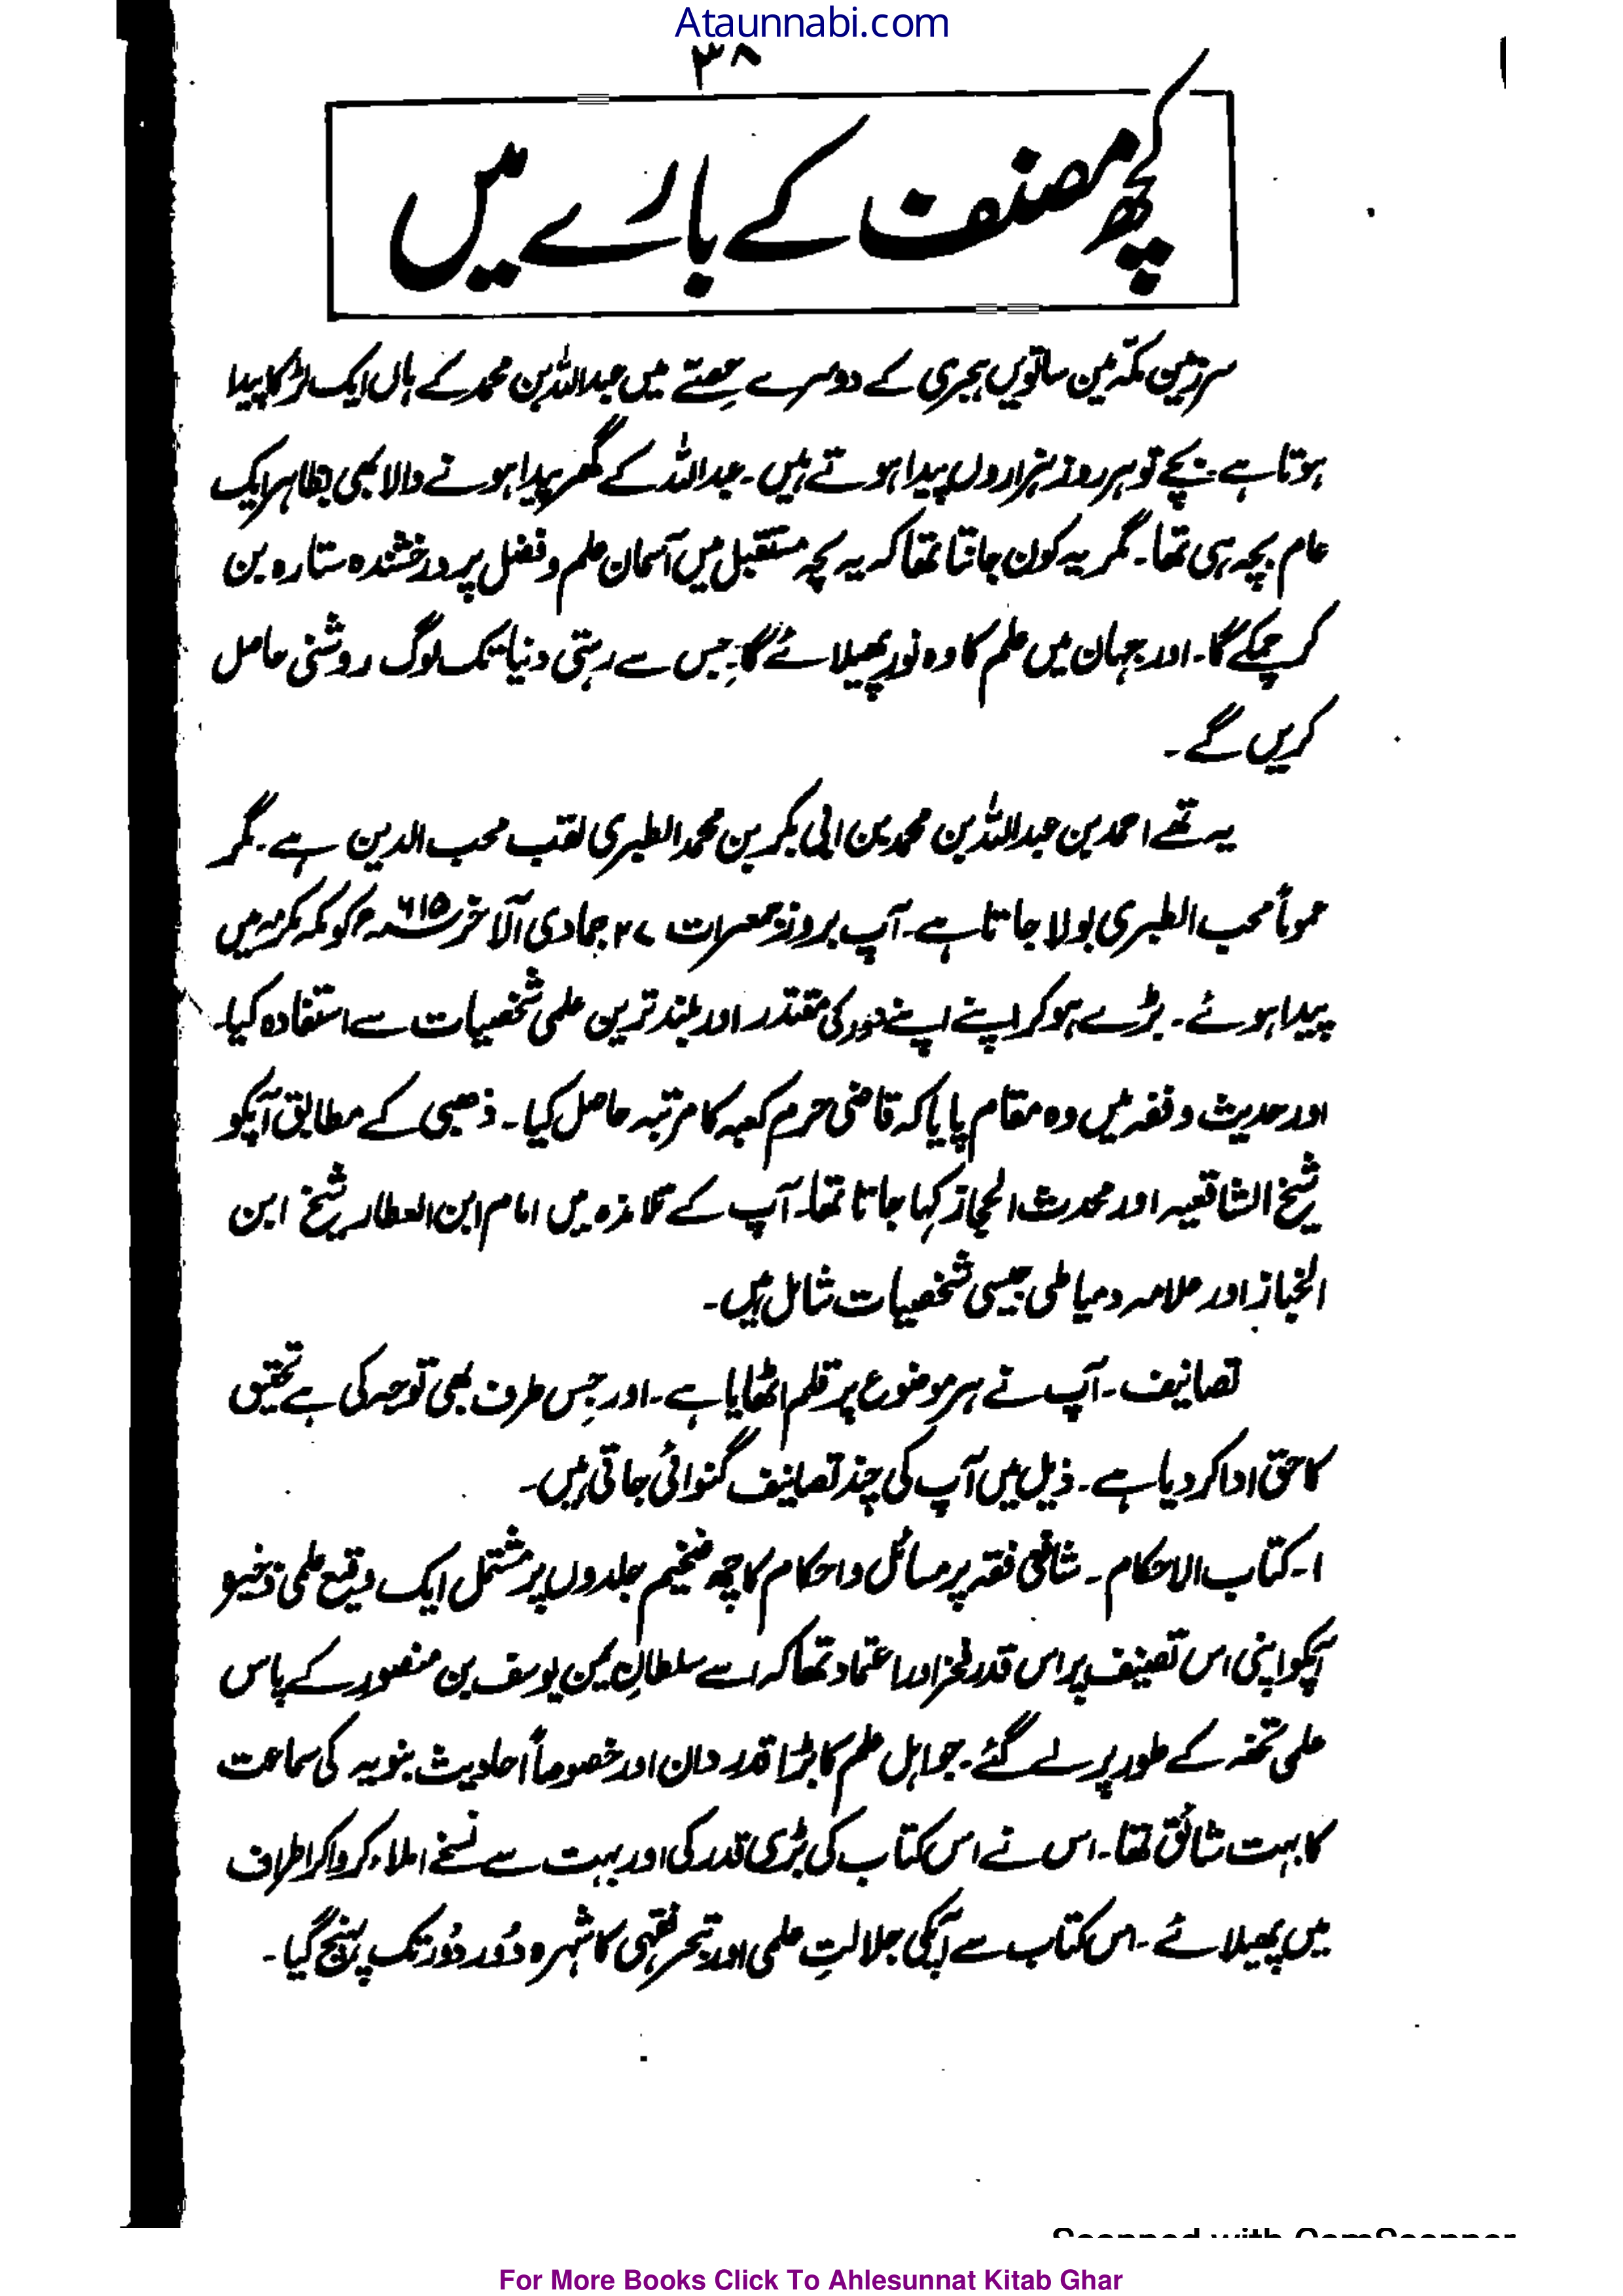 Ataunnabi.com
۳۸
کچھ مصنف کے بارے میں
سرزمین مکّہ میں ساتویں ہجری کے دوسرے حِصّے میں عبداللہ بن محمد کے ہاں ایک لڑکا پیدا
ہوتا ہے۔ بچے تو ہر روز ہزاروں پیدا ہوتے ہیں۔ عبداللہ کے گھر پیدا ہونے والا بھی بظاہر ایک
عام بچہ ہی تھا۔ مگر یہ کون جانتا تھا کہ یہ بچہ مستقبل میں آسمان علم و فضل پر درخشندہ ستارہ بن
کر چمکے گا۔ اور جہان میں علم کا وہ نور پھیلائے گا۔ جِس سے رہتی دنیا تک لوگ روشنی حاصل
کریں گے۔
یہ تھے احمد بن عبداللہ بن محمد بن ابی بکر بن محمد الطبری لقب محب الدین ہے۔ مگر
عموماً محب الطبری بولا جاتا ہے۔ آپ بروز جمعرات ۲۷ جمادی الآخر ۶۱۵ھ کو مکہ مکرمہ میں
پیدا ہوئے۔ بڑے ہو کر اپنے اپنے دور کی مقتدر اور بلند ترین علمی شخصیات سے استفادہ کیا۔
اور حدیث و فقہ میں وہ مقام پایا کہ قاضی حرم کعبہ کا مرتبہ حاصل کیا۔ ذھبی کے مطابق آپکو
شیخ الشافعیہ اور محدث الحجاز کہا جاتا تھا۔ آپ کے تلامذہ میں امام ابن العطار شیخ ابن
الخباز اور علامہ دمیاطی جیسی شخصیات شامل ہیں۔
تصانیف۔ آپ نے ہر موضوع پر قلم اٹھایا ہے۔ اور جِس طرف بھی توجہ کی ہے تحقیق
کا حق ادا کر دیا ہے۔ ذیل میں آپ کی چند تصانیف گنوائی جاتی ہیں۔
۱۔ کتاب الاحکام۔ شافعی فقہ پر مسائل و احکام کا چھ ضخیم جلدوں پر مشتمل ایک وقیع علمی ذخیرہ
آپکو اپنی اس تصنیف پر اس قدر فخر اور اعتماد تھا کہ اسے سلطانِ یمن یوسف بن منصور کے پاس
علمی تحفہ کے طور پر لے گئے۔ جو اہل علم کا بڑا قدر دان اور خصوصاً احادیث نبویہ کی سماعت
کا بہت شائق تھا۔ اس نے اس کتاب کی بڑی قدر کی اور بہت سے نسخے املاء کروا کر اطراف
میں پھیلائے۔ اس کتاب سے آپکی جلالتِ علمی اور تبحر فقہی کا شہرہ دُور دُور تک پہنچ گیا۔
Scanned with CamScanner
For More Books Click To Ahlesunnat Kitab Ghar